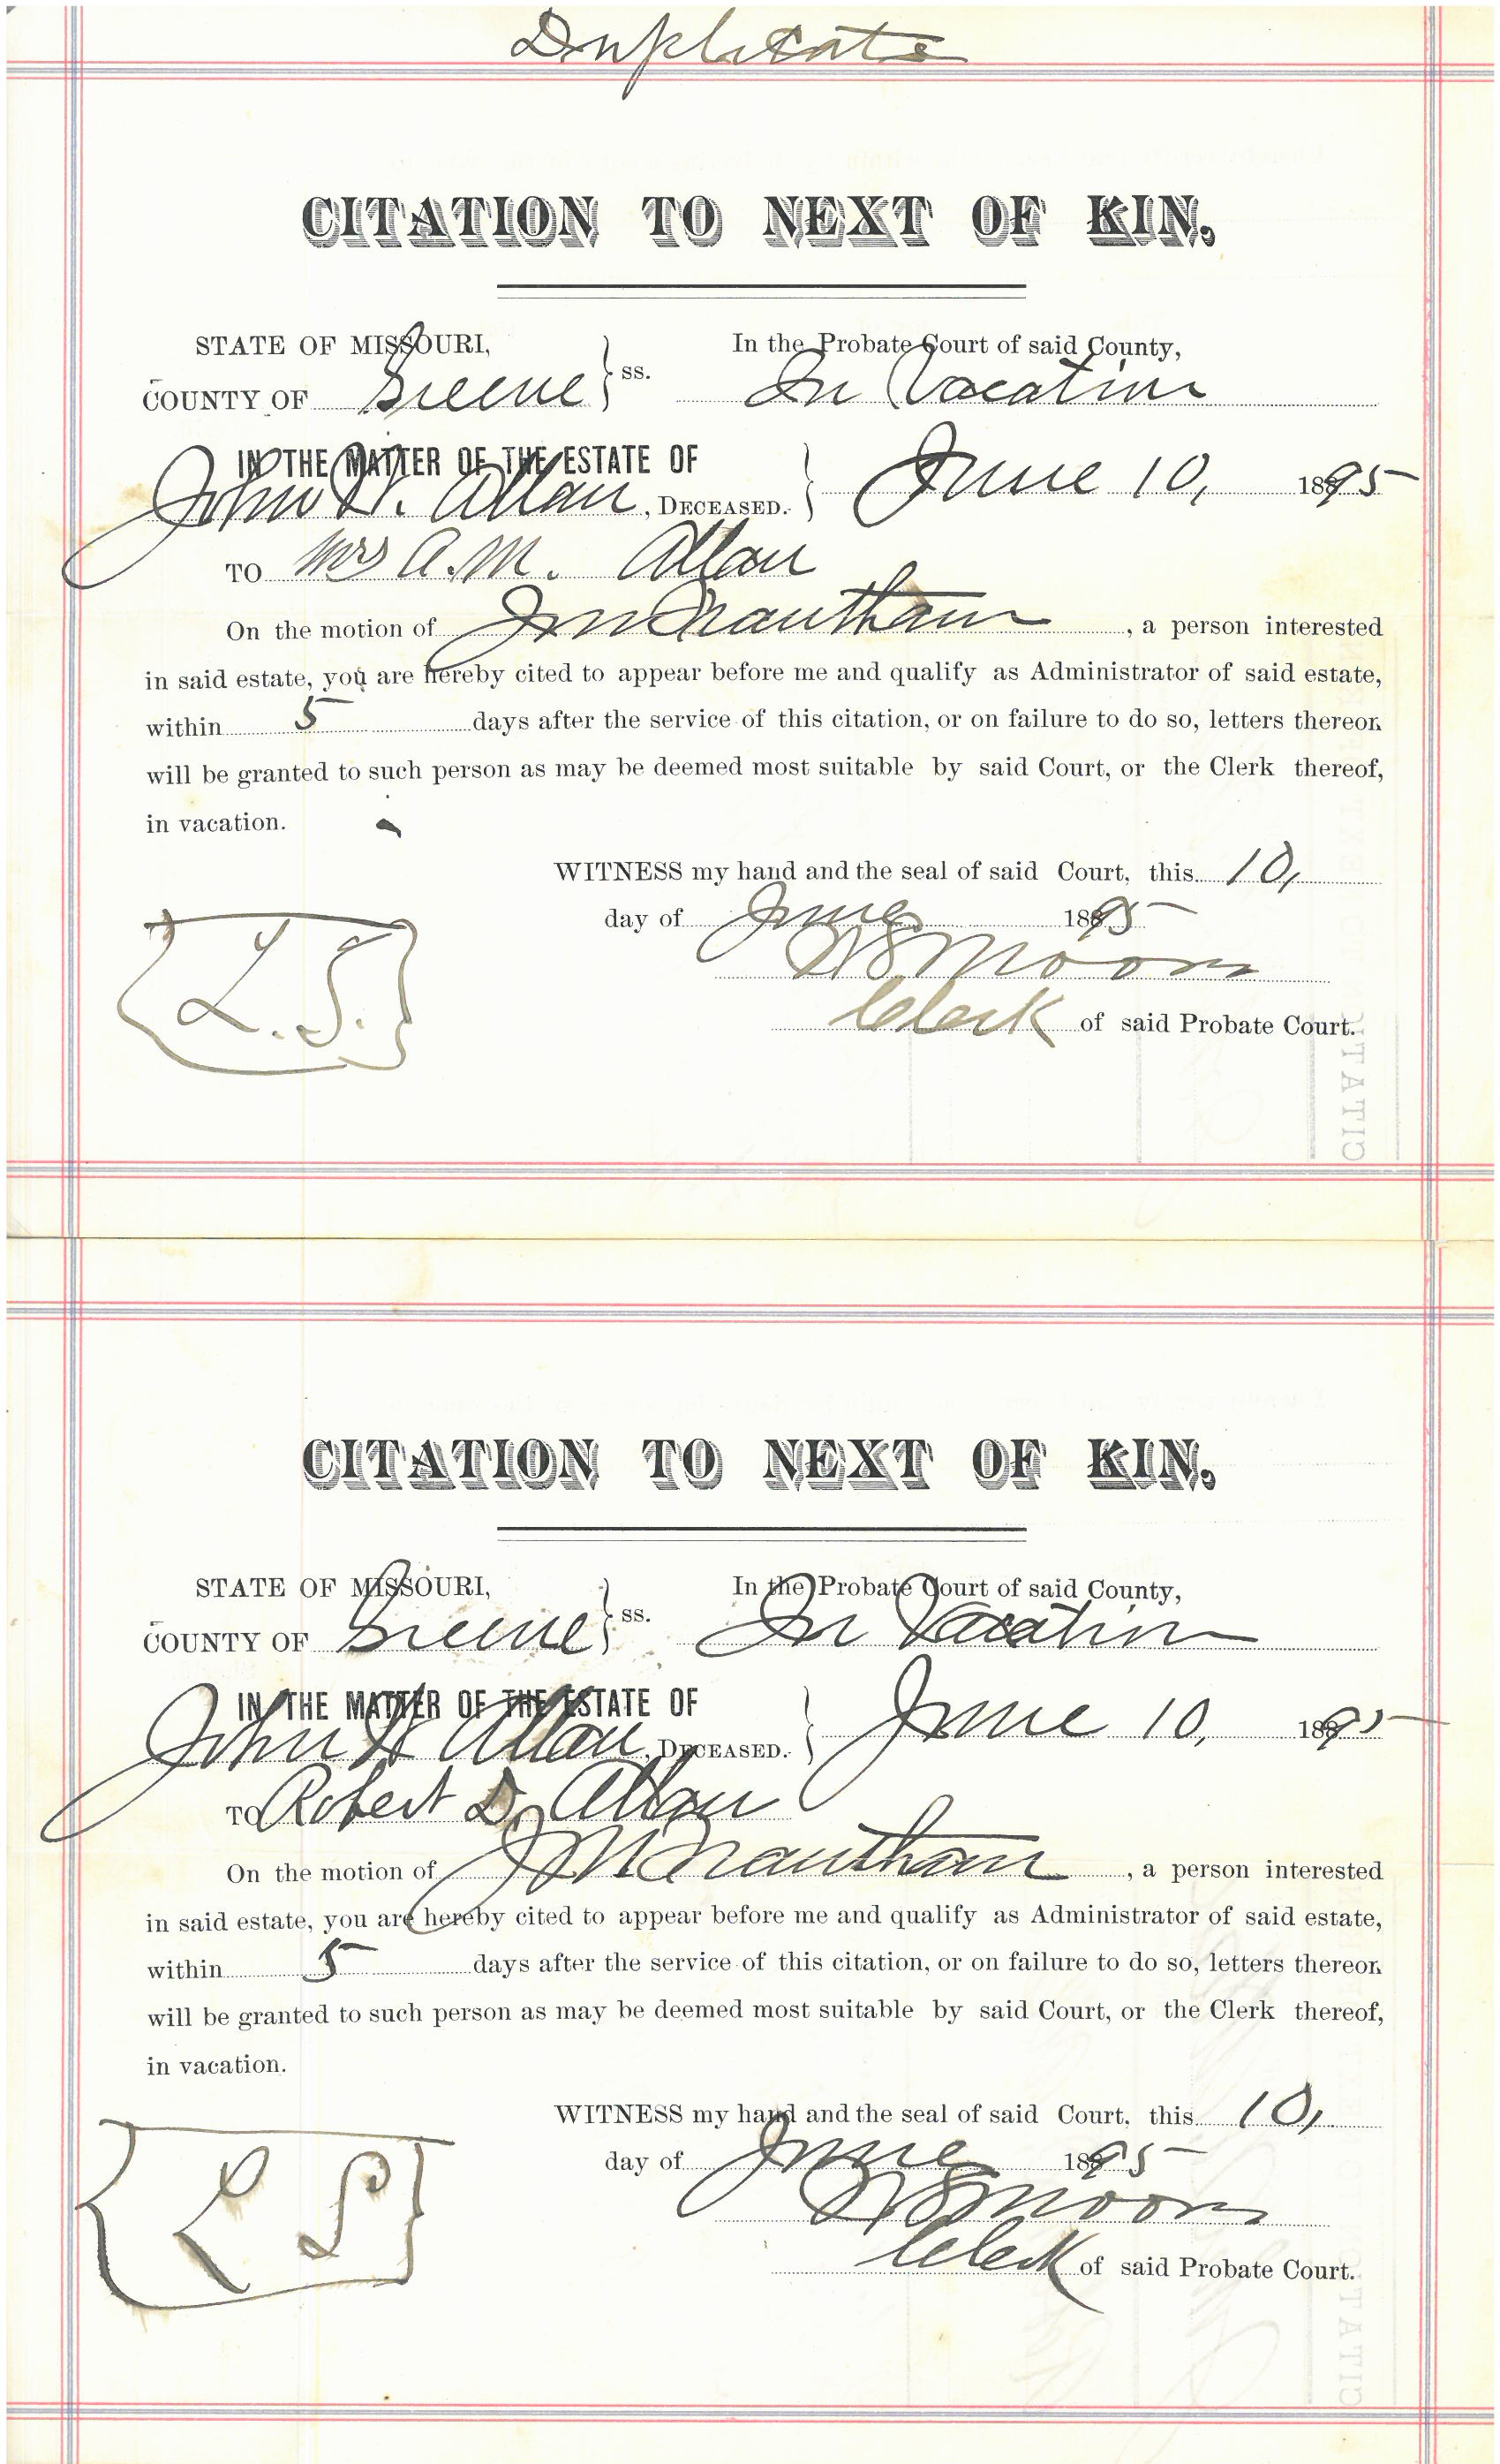 Duplicate
CITATION TO NEXT OF KIN.
STATE OF MISSOURI,
COUNTY OF Greene } ss.
In the Probate Court of said County,
In Vacation
IN THE MATTER OF THE ESTATE OF
John H. Allan, DECEASED. } June 10, 1895
TO Mrs A. M. Allan
On the motion of J M Grantham, a person interested
in said estate, you are hereby cited to appear before me and qualify as Administrator of said estate,
within 5 days after the service of this citation, or on failure to do so, letters thereon
will be granted to such person as may be deemed most suitable by said Court, or the Clerk thereof,
in vacation.
WITNESS my hand and the seal of said Court, this 10,
day of June 1895
L. S.
Moore
Clerk of said Probate Court.
CITATIO
CITATION TO NEXT OF KIN.
STATE OF MISSOURI,
COUNTY OF Greene } ss.
In the Probate Court of said County,
In Vacation
IN THE MATTER OF THE ESTATE OF
John H Allan, DECEASED. } June 10, 1895
TO Robert D. Allan
On the motion of J M Grantham, a person interested
in said estate, you are hereby cited to appear before me and qualify as Administrator of said estate,
within 5 days after the service of this citation, or on failure to do so, letters thereon
will be granted to such person as may be deemed most suitable by said Court, or the Clerk thereof,
in vacation.
WITNESS my hand and the seal of said Court, this 10,
day of June 1895
L S
Moore
Clerk of said Probate Court.
CITATIO